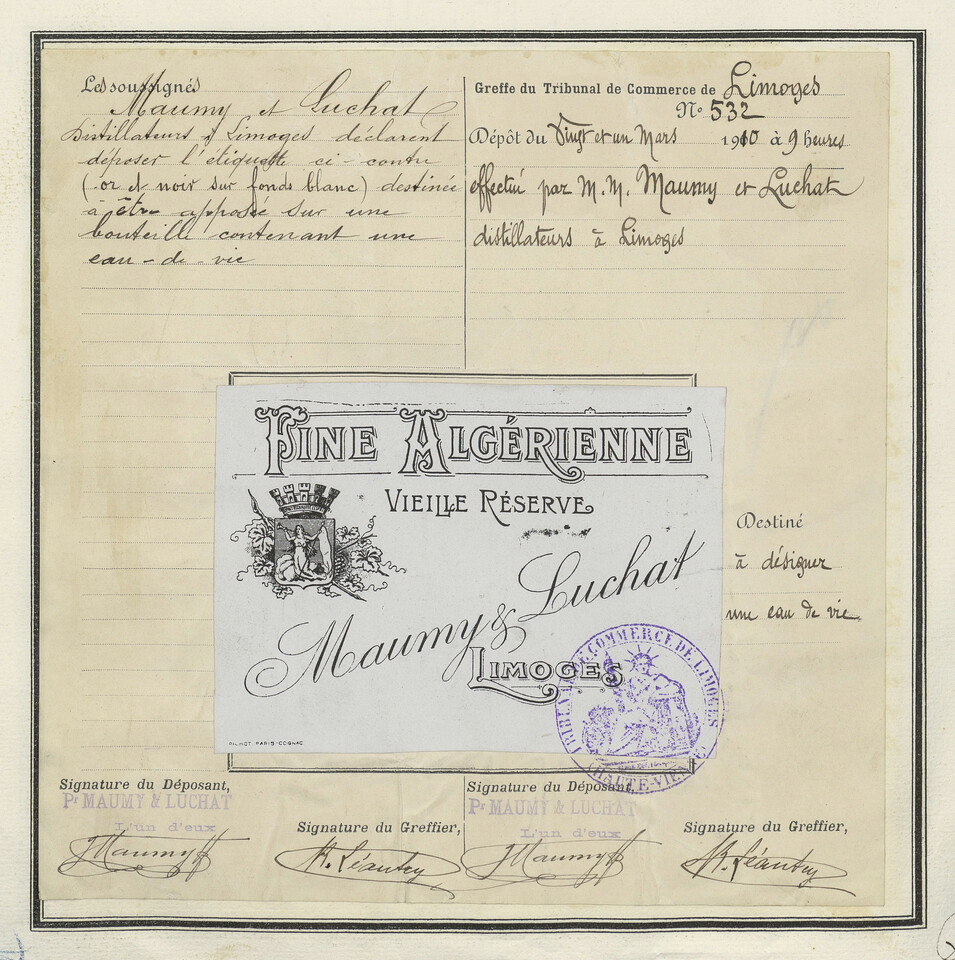 Les soussignés
Maumy et Luchat
Distillateurs à Limoges déclarent
déposer l'étiquette ci-contre
(or et noir sur fonds blanc) destinée
à être apposée sur une
bouteille contenant une
eau-de-vie
Greffe du Tribunal de Commerce de Limoges
No 532
Dépôt du Vingt et un Mars 1910 à 9 heures
effectué par M.M. Maumy et Luchat
distillateurs à Limoges
FINE ALGÉRIENNE
VIEILLE RÉSERVE
Maumy & Luchat
LIMOGES
PARIS-COGNAC
Destiné
à désigner
une eau de vie
TRIBUNAL DE COMMERCE DE LIMOGES
(HAUTE-VIENNE)
Signature du Déposant,
Pr MAUMY & LUCHAT
L'un d'eux
Maumy
Signature du Greffier,
Signature du Déposant,
Pr MAUMY & LUCHAT
L'un d'eux
Maumy
Signature du Greffier,